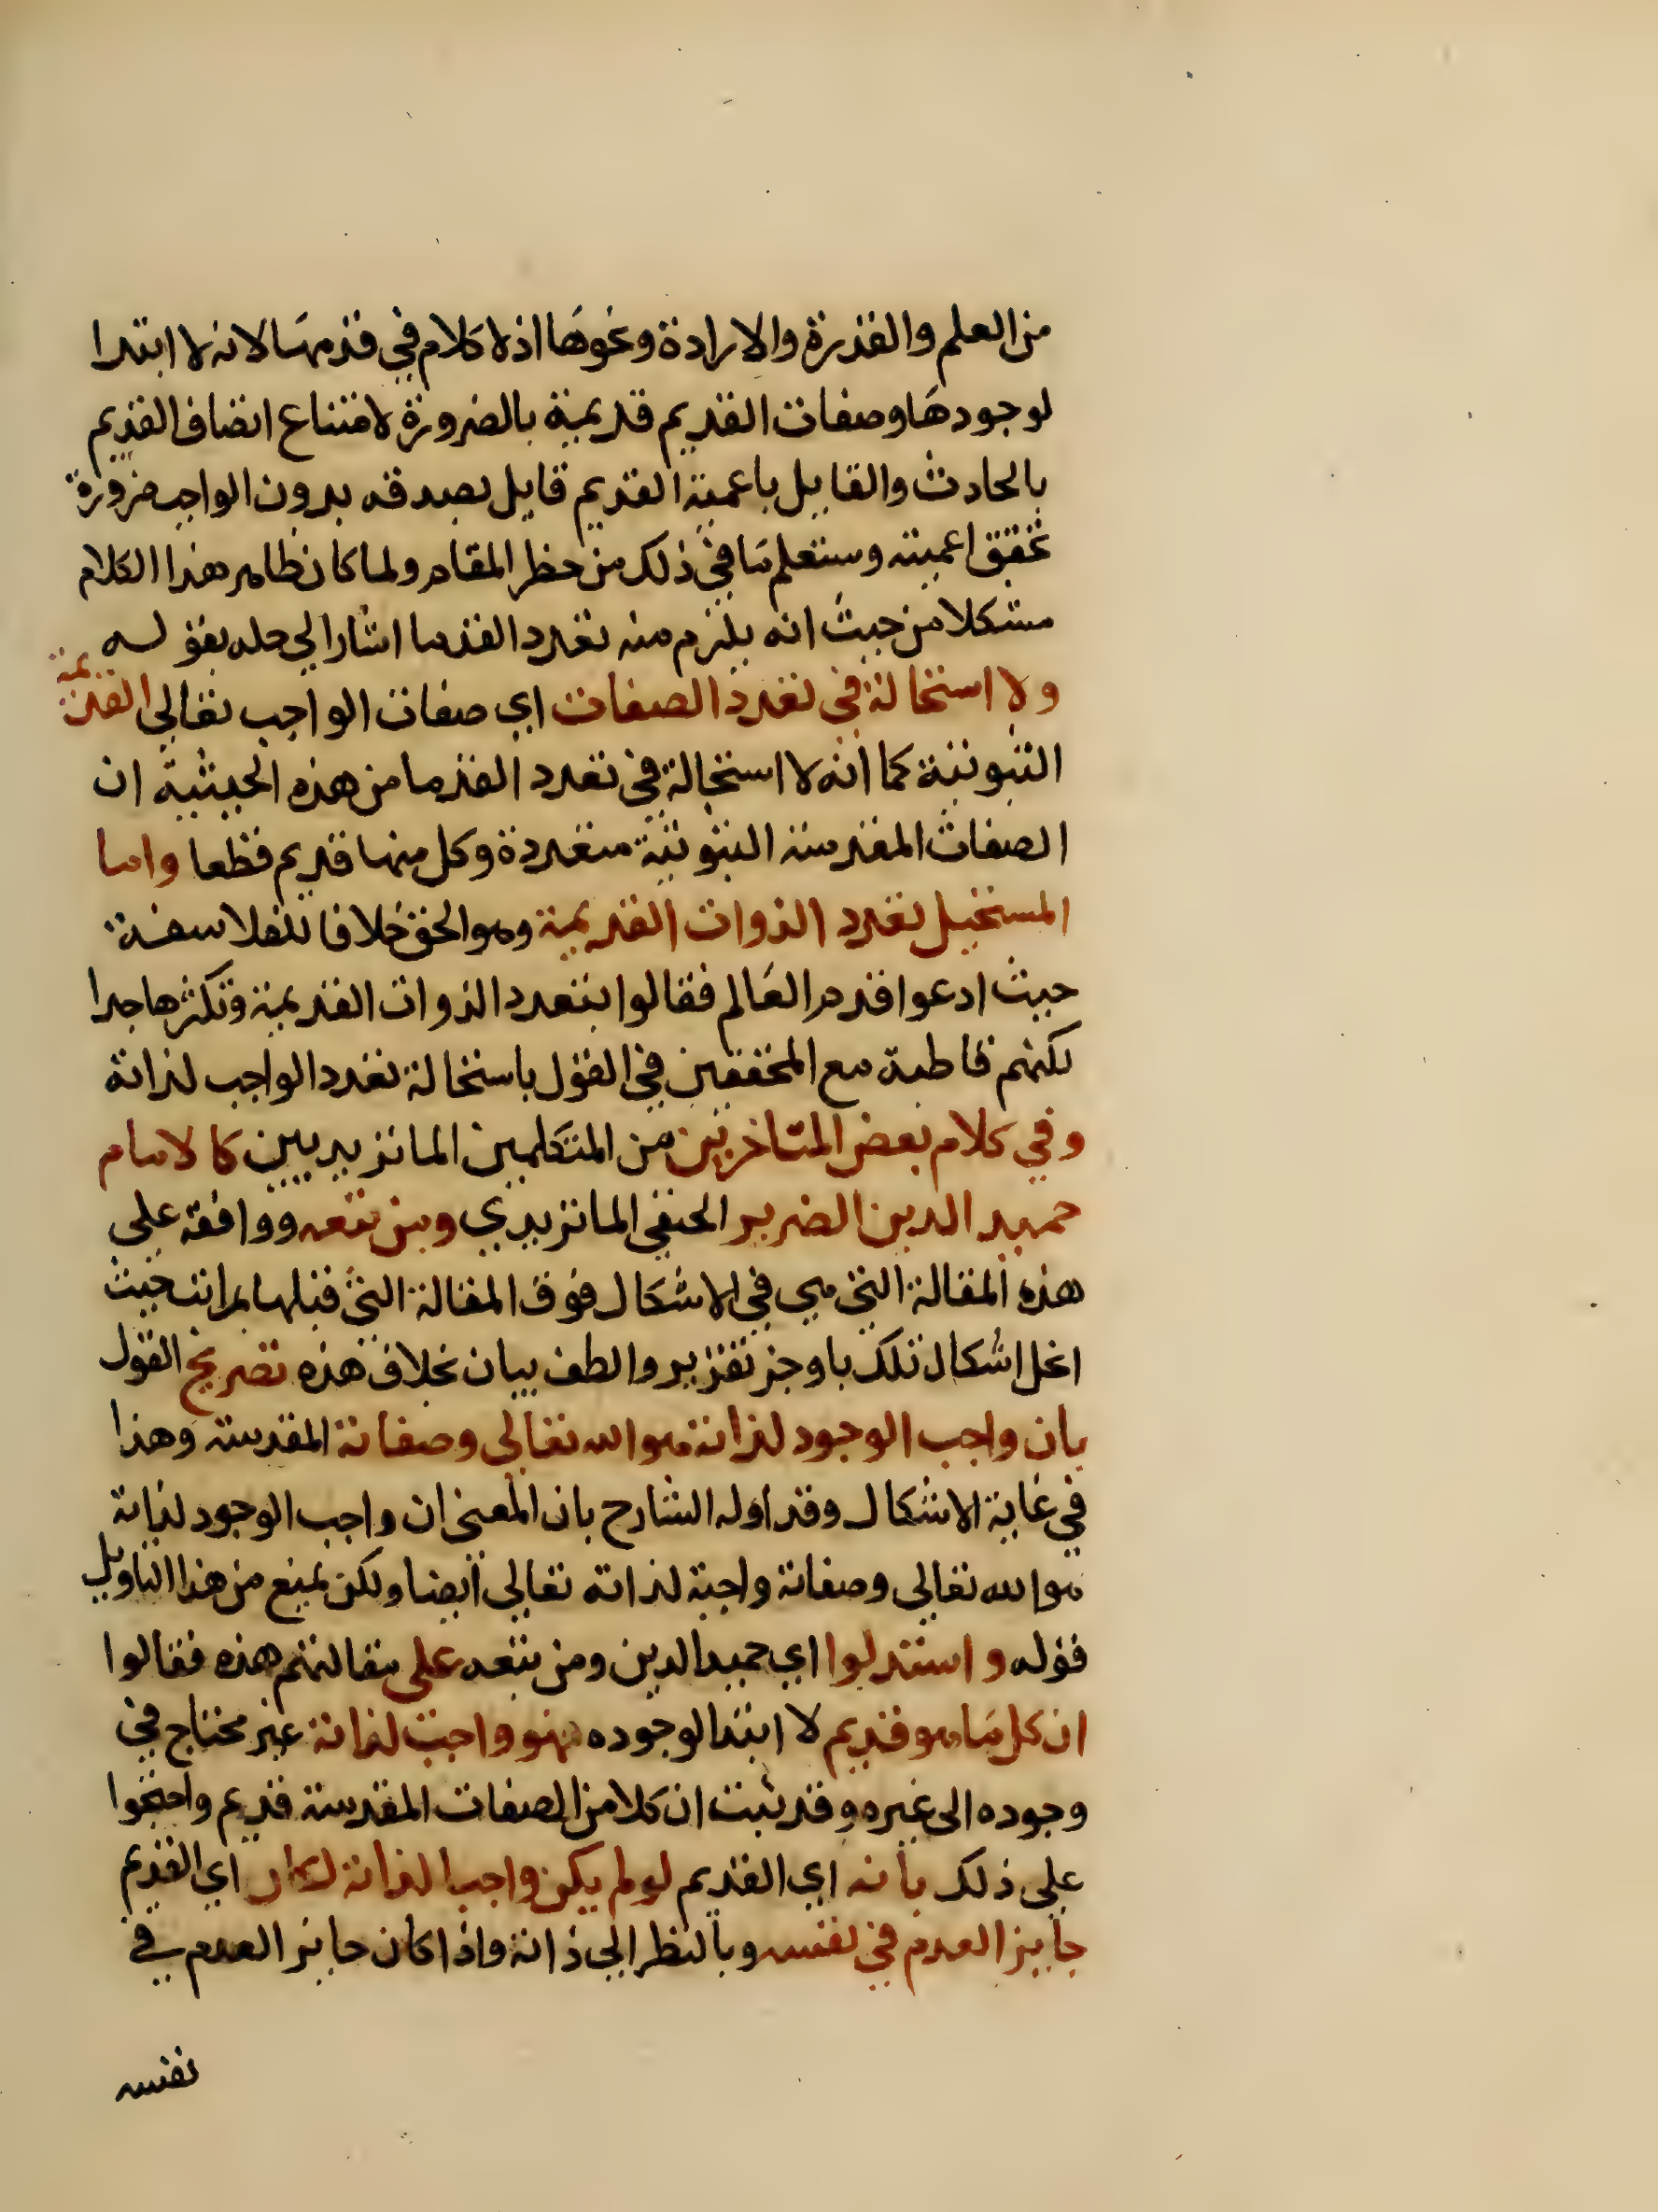 من العلم والقدرة والارادة ونحوها اذ لا كلام في قدمها لانه لا ابتدا
لوجودها وصفات القديم قديمة بالضرورة لامتناع اتصاف القديم
بالحادث والقايل باعمية القديم قايل بصدقه بدون الواجب ضرورة
تحقق اعميته وستعلم ما في ذلك من خطر المقام ولما كان ظاهر هذا الكلام
مشكلا من حيث انه يلزم منه تعدد القدما اشار الى حله بقوله
ولا استحالة في تعدد الصفات اي صفات الواجب تعالى القديمة
الثبوتية كما انه لا استحالة في تعدد القدما من هذه الحيثية ان
الصفات المقدسة الثبوتية متعددة وكل منها قديم قطعا واما
المستحيل تعدد الذوات القديمة وهو الحق خلافا للفلاسفة
حيث ادعوا قدم العالم فقالوا بتعدد الذوات القديمة وتكثرها جدا
لكنهم قاطبة مع المحققين في القول باستحالة تعدد الواجب لذاته
وفي كلام بعض المتاخرين من المتكلمين الماتريديين كالامام
حميد الدين الضرير الحنفي الماتريدي ومن تبعه ووافقه على
هذه المقالة التي هي في الاشكال فوق المقالة التي قبلها بمراتب حيث
انحل اشكال تلك باوجز تقرير والطف بيان بخلاف هذه تصريح القول
بان واجب الوجود لذاته هو الله تعالى وصفاته المقدسة وهذا
في غاية الاشكال وقد اوله الشارح بان المعنى ان واجب الوجود لذاته
هو الله تعالى وصفاته واجبة لذاته تعالى ايضا ولكن يمنع من هذا التاويل
قوله واستدلوا اي حميد الدين ومن تبعه على مقالتهم هذه فقالوا
ان كل ما هو قديم لا ابتدا لوجوده فهو واجب لذاته غير محتاج في
وجوده الى غيره وقد ثبت ان كلا من الصفات المقدسة قديم واحتجوا
على ذلك بانه اي القديم لو لم يكن واجبا لذاته لكان اي القديم
جايز العدم في نفسه وبالنظر الى ذاته واذا كان جايز العدم في
نفسه